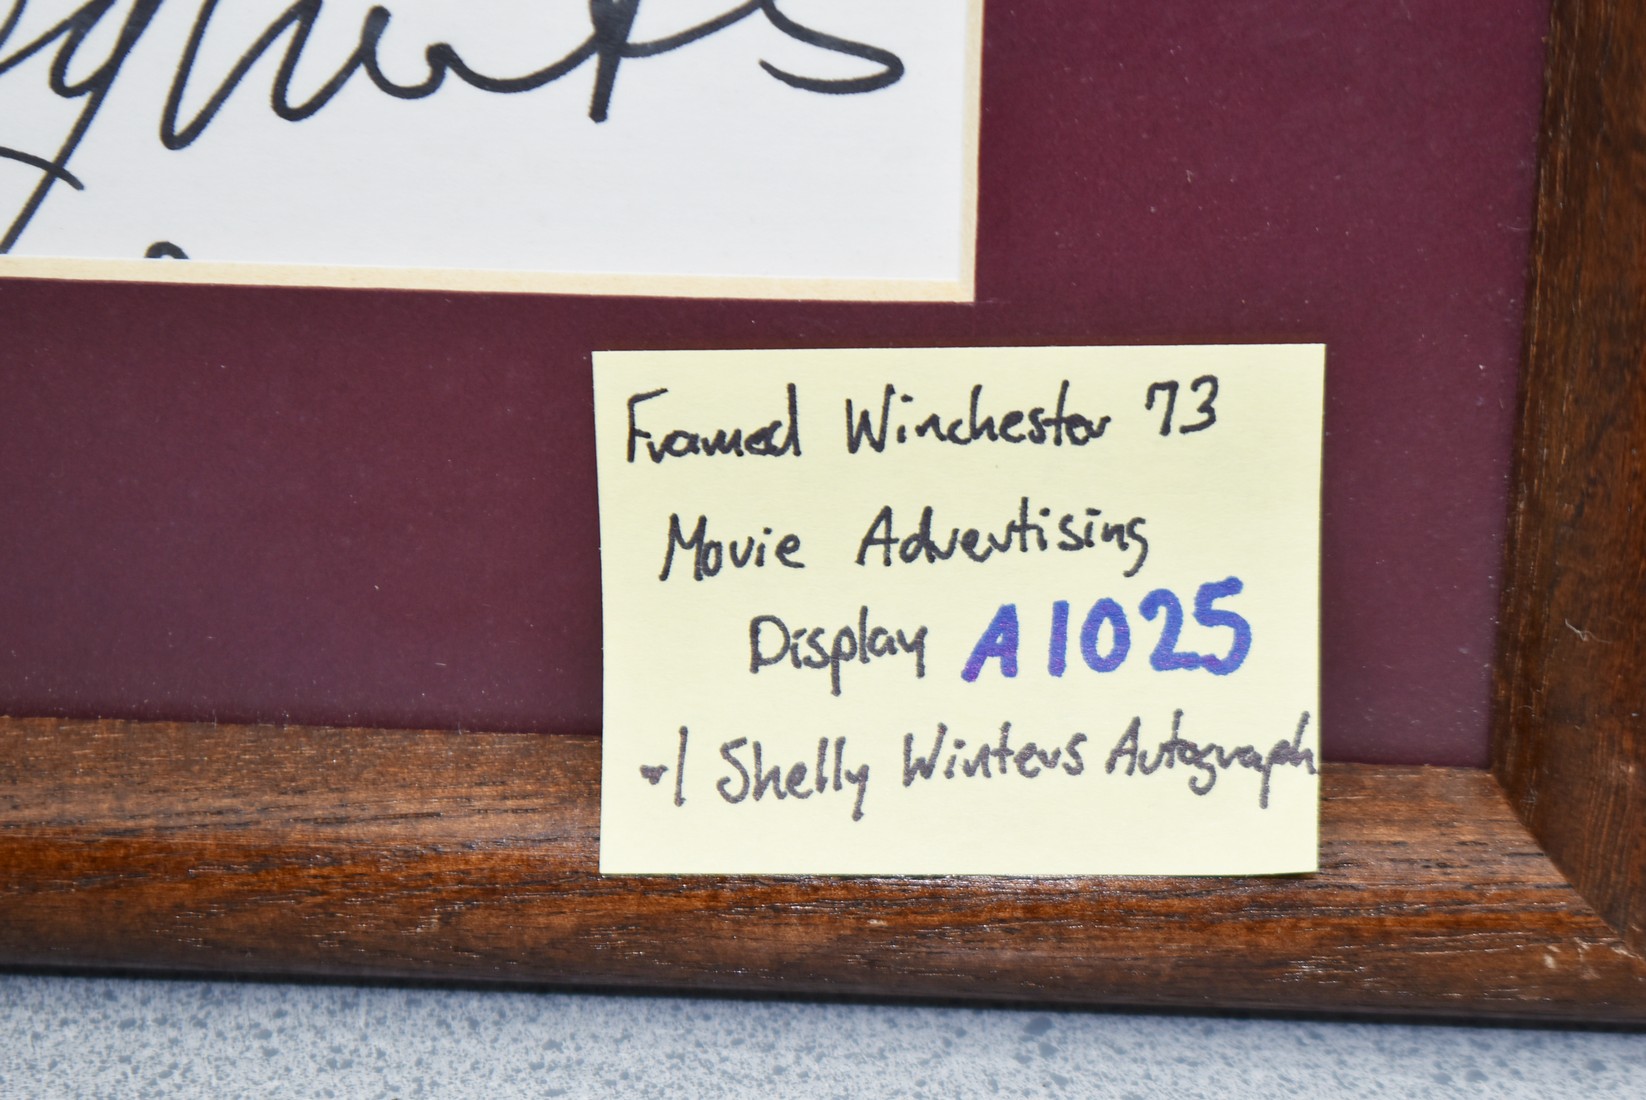 Framed Winchester 73
Movie Advertising
Display A1025
Shelly Winters Autograph